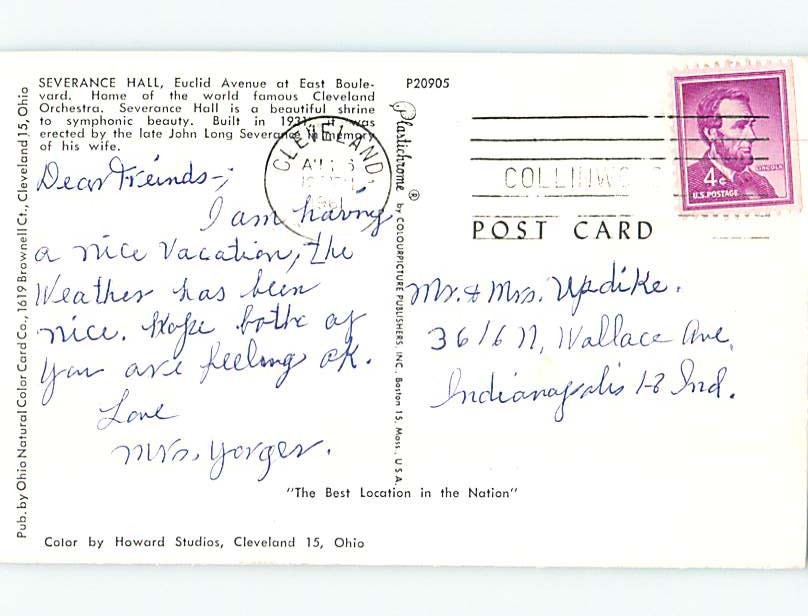 SEVERANCE HALL, Euclid Avenue at East Boule-
vard. Home of the world famous Cleveland
Orchestra. Severance Hall is a beautiful shrine
to symphonic beauty. Built in 1931, it was
erected by the late John Long Severance in memory
of his wife.
Dear Freinds-;
I am having
a nice vacation, the
Weather has been
nice. Hope bothe of
you are feeling ok.
Love
Mrs. Yorger.
Pub. by Ohio Natural Color Card Co., 1619 Brownell Ct., Cleveland 15, Ohio
Color by Howard Studios, Cleveland 15, Ohio
P20905
Plastichrome ® by COLOURPICTURE PUBLISHERS, INC. Boston 15, Mass., U.S.A.
"The Best Location in the Nation"
CLEVELAND,
POST CARD
LINCOLN
4¢
U.S. POSTAGE
Mr. & Mrs. Updike.
3616 N, Wallace Ave,
Indianapolis 18 Ind.